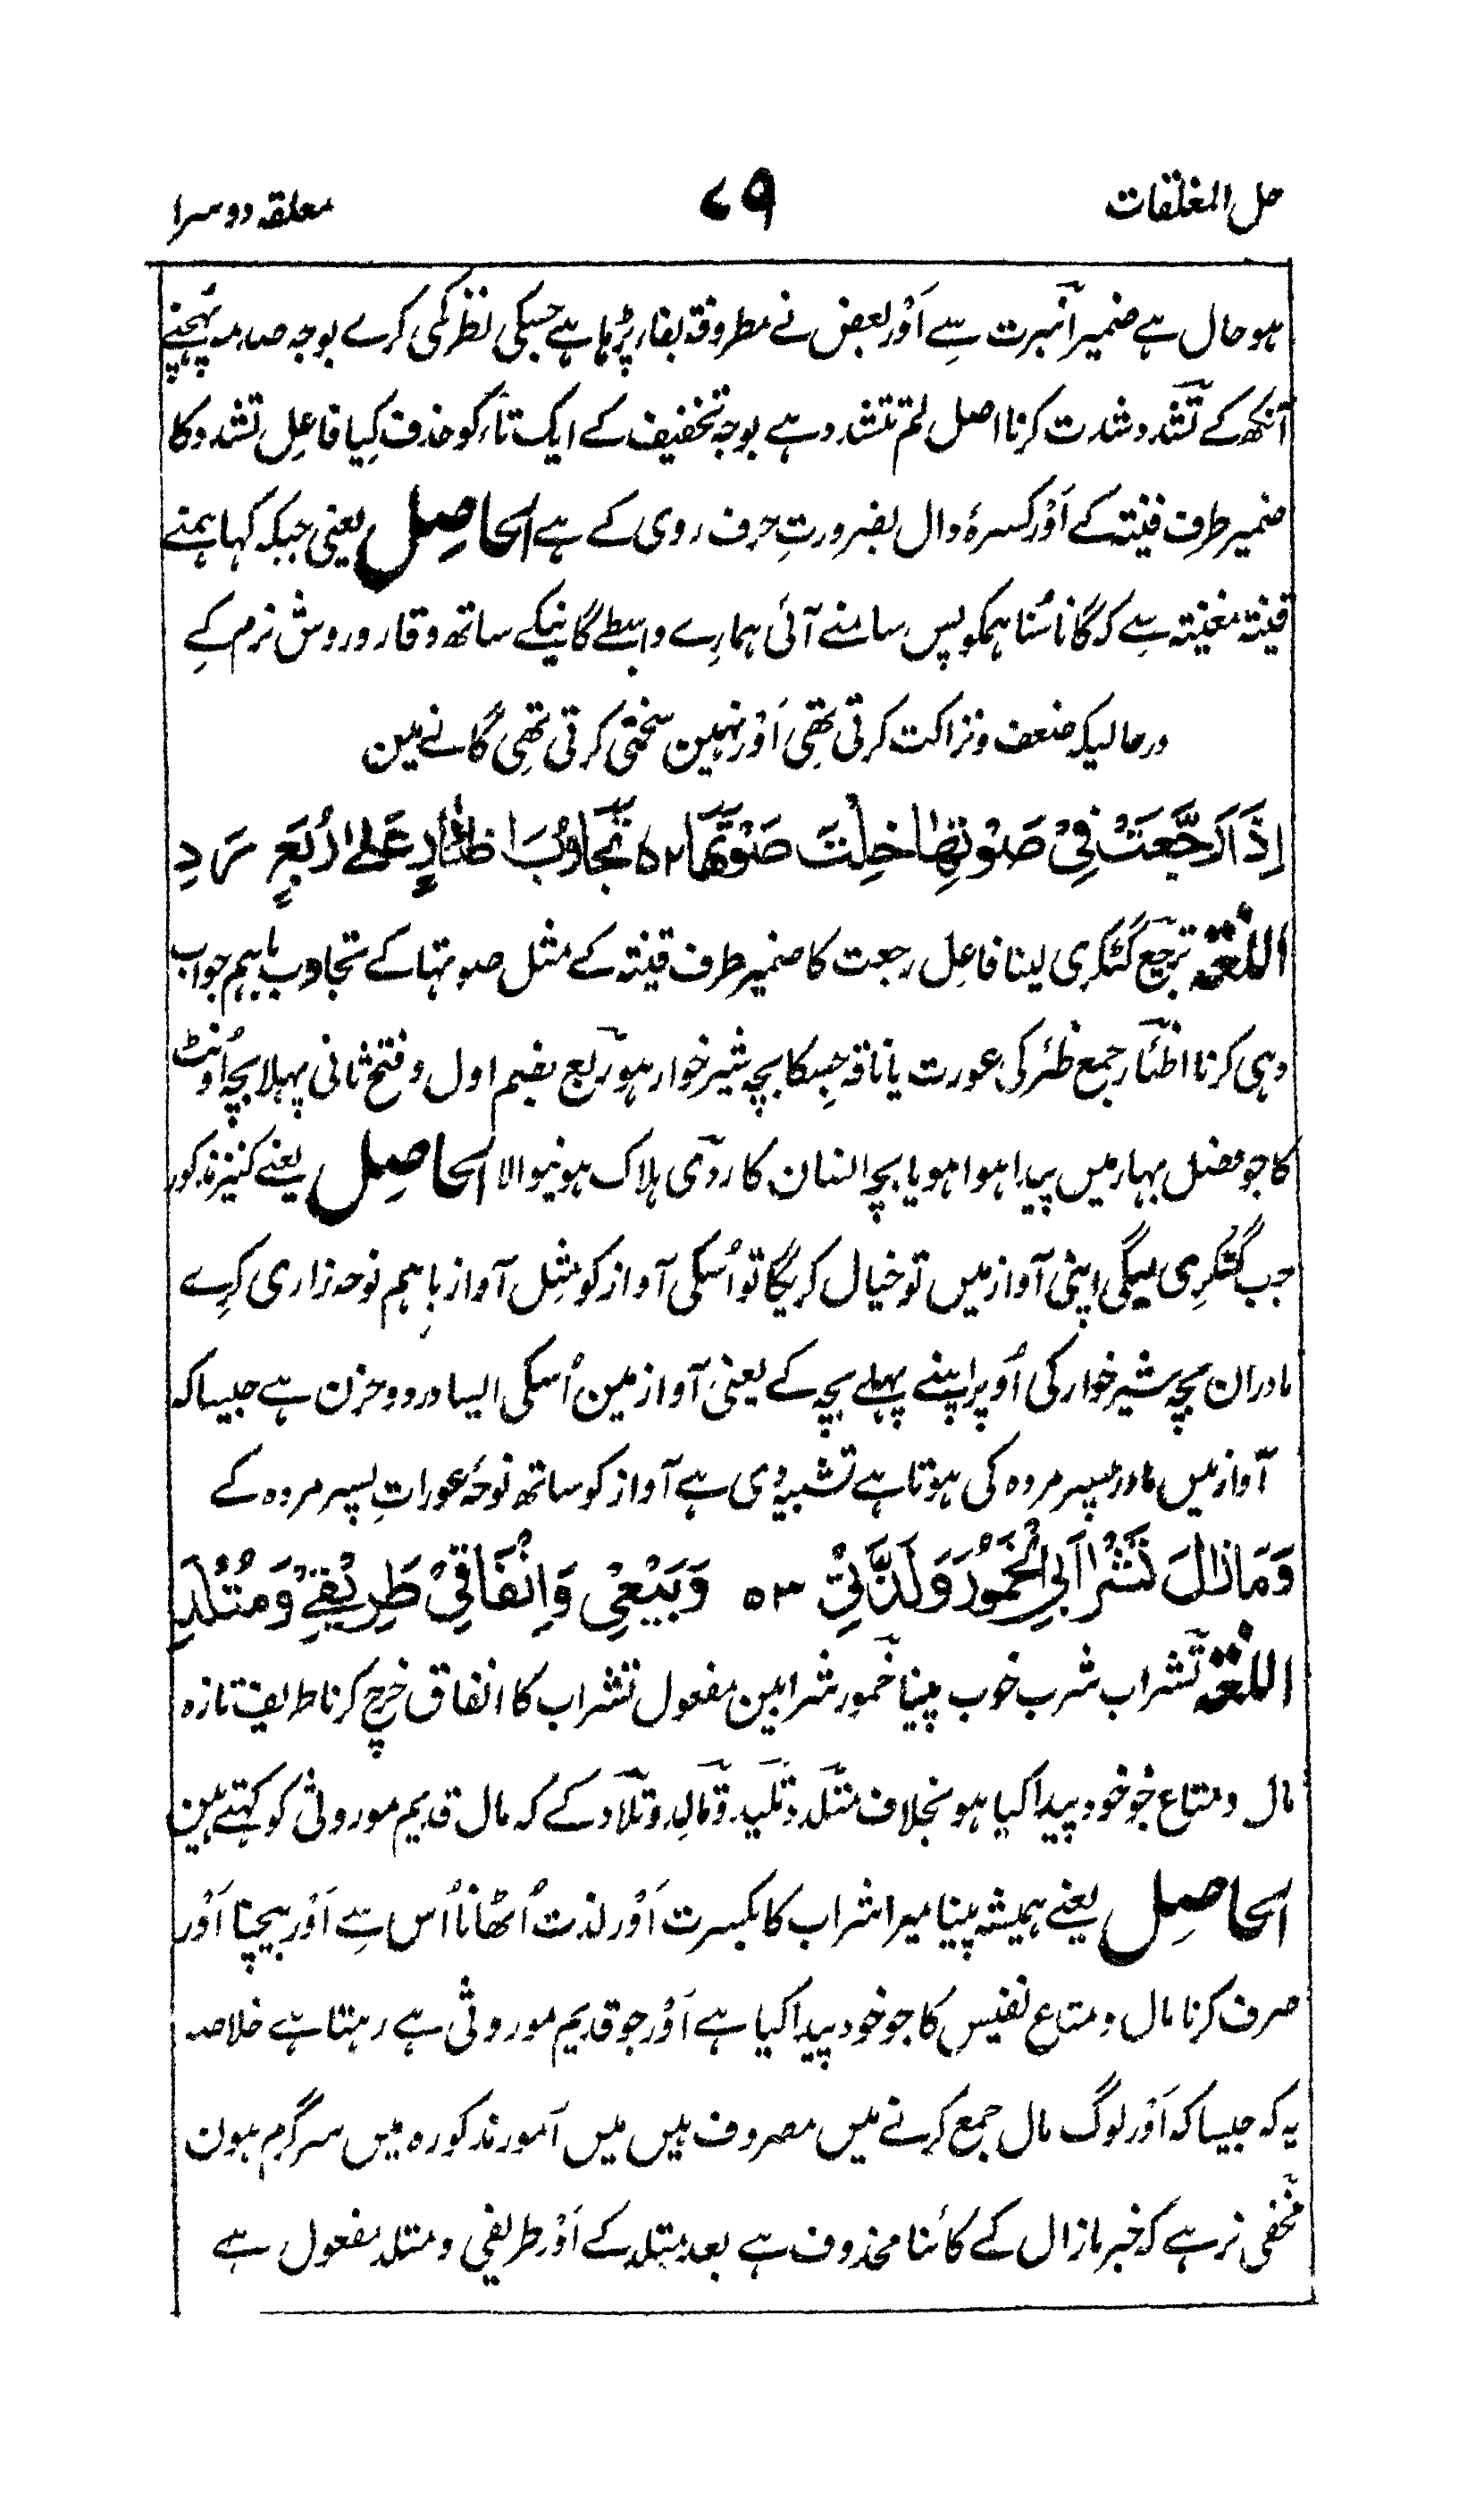 حل المغلقات ۷۹ معلقہ دوسرا
ہو حال ہے ضمیر انبرت سے اَوْر بعض نے مطروفۃ بفار پڑہا ہے جسکی نظر کمی کرے بوجہ صدمہ پہُنچنے
آنکھ کے تشدد شدت کرنا اصل لم تتشدد ہے بوجہ تخفیف کے ایک تاء کو حذف کیا فاعِل تشدد کا
ضمیر طرف قینتہ کے اَوْر کسرۂ دال بضرورتِ حرف روی کے ہے الحاصِل یعنی جبکہ کہا ہمنے
قینتہ مغنیتہ سے کہ گانا سُنا ہمکو پس سامنے آئی ہمارے واسطے گانیکے ساتھ وقار و روش نرم کے
درحالیکہ ضعف و نزاکت کرتی تھی اَوْر نہین سختی کرتی تھی گانے مین
اِذَا رَجَّعَتْ فِیْ صَوْتِهَا خِلْتَ صَوْتَهَا ۵۲ تَجَاوُبَ اَظْآرٍ عَلیٰ رُبَعٍ رَدِ
اللغۃ ترجیع گٹکری لینا فاعِل رجعت کا ضمیر طرف قینتہ کے مثل صوتہا کے تجاوب باہم جواب
دہی کرنا اظئار جمع ظئر کی عورت یا ناقہ جسکا بچہ شیر خوار ہو ربع بضم اول و فتح ثانی پہلا بچہ اُونٹ
کا جو فصل بہار میں پیدا ہوا ہو یا بچہ انسان کا ردی ہلاک ہونیوالا الحاصِل یعنے کنیز مذکور
جب گٹکری لیگی اپنی آواز میں تو خیال کریگا تو اُسکی آواز کو مثِل آواز باہم نوحہ زاری کرے
مادران بچہ شیر خوار کی اُوپر اپنے پہلے بچہ کے یعنی آواز مین اُسکی ایسا درد و حزن ہے جیسا کہ
آواز میں مادر پسر مردہ کی ہوتا ہے تشبیہ دی ہے آواز کو ساتھ نوحۂ عوراتِ پسر مردہ کے
وَمَا زَالَ تَشْرَابِی الْخُمُوْرَ وَلَذَّتِیْ ۵۳ وَبَیْعِیْ وَاِنْفَاقِیْ طَرِیْفِیْ وَمُتْلَدِ
اللغۃ تشراب شرب خوب پینا خمور شرابین مفعول تشراب کا انفاق خرچ کرنا طریف تازہ
مال و متاع جو خود پیدا کیا ہو بخلاف متلد و تلید و تالد و تلاد کے کہ مال قدیم موروثی کو کہتے ہین
الحاصِل یعنے ہمیشہ پینا میرا شراب کا بکسرت اَوْر لذت اُٹھانا اُس سے اَوْر بیچنا اَوْر
صرف کرنا مال و متاع نفیس کا جو خود پیدا کیا ہے اَوْر جو قدیم موروثی ہے رہتا ہے خلاصہ
یہ کہ جیسا کہ اَوْر لوگ مال جمع کرنے میں مصروف ہیں میں اَمور مذکورہ میں سرگرم ہون
مخفی نرہے کہ خبر مازال کے کائنا محذوف ہے بعد متلد کے اَوْر طریفی و متلد مفعول ہے